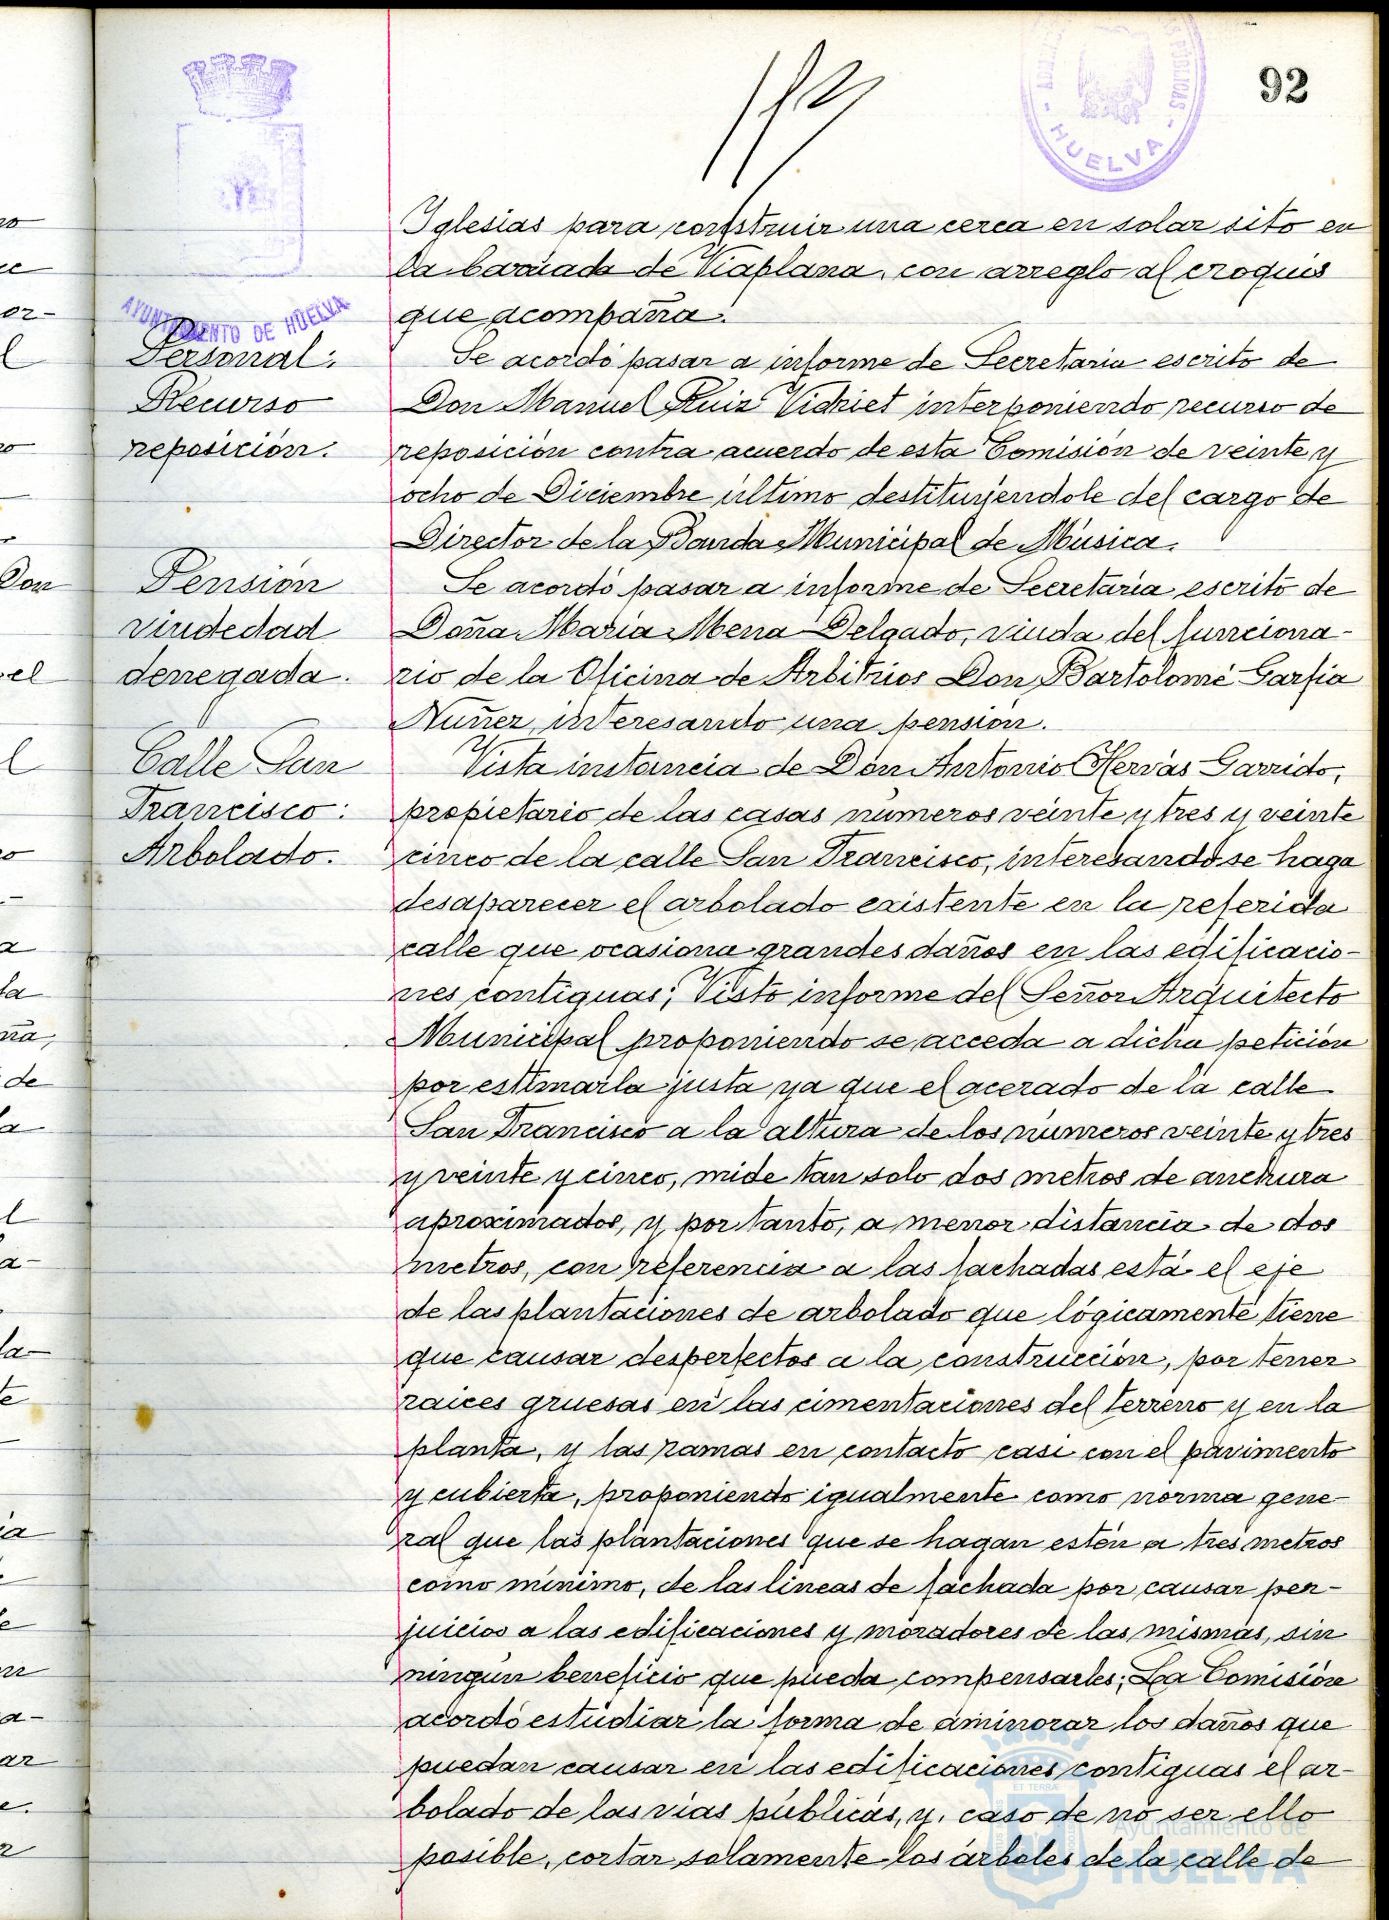 92
HUELVA
AYUNTAMIENTO DE HUELVA
Iglesias para construir una cerca en solar sito en
la barriada de Viaplana, con arreglo al croquis
que acompaña.
Personal:
Recurso
reposición.
Se acordó pasar a informe de Secretaria escrito de
Don Manuel Ruiz Vidriet interponiendo recurso de
reposición contra acuerdo de esta Comisión de veinte y
ocho de Diciembre último destituyéndole del cargo de
Director de la Banda Municipal de Música.
Pensión
viudedad
denegada.
Se acordó pasar a informe de Secretaría, escrito de
Doña María Mena Delgado, viuda del funciona-
rio de la Oficina de Arbitrios Don Bartolomé Garfia
Nuñez, interesando una pensión.
Calle San
Francisco:
Arbolado.
Vista instancia de Don Antonio Hervás Garrido,
propietario de las casas números veinte y tres y veinte
cinco de la calle San Francisco, interesando se haga
desaparecer el arbolado existente en la referida
calle que ocasiona grandes daños en las edificacio-
nes contiguas; Visto informe del Señor Arquitecto
Municipal proponiendo se acceda a dicha petición
por estimarla justa ya que el acerado de la calle
San Francisco a la altura de los números veinte y tres
y veinte y cinco, mide tan solo dos metros de anchura
aproximados, y por tanto, a menor distancia de dos
metros, con referencia a las fachadas está el eje
de las plantaciones de arbolado que lógicamente tiene
que causar desperfectos a la construcción, por tener
raices gruesas en las cimentaciones del terreno y en la
planta, y las ramas en contacto casi con el pavimento
y cubierta, proponiendo igualmente como norma gene-
ral que las plantaciones que se hagan estén a tres metros
como mínimo, de las lineas de fachada por causar per-
juicios a las edificaciones y moradores de las mismas, sin
ningún beneficio que pueda compensarles; La Comisión
acordó estudiar la forma de aminorar los daños que
puedan causar en las edificaciones contiguas el ar-
bolado de las vías públicas, y, caso de no ser ello
posible, cortar solamente los árboles de la calle de
Ayuntamiento de
HUELVA